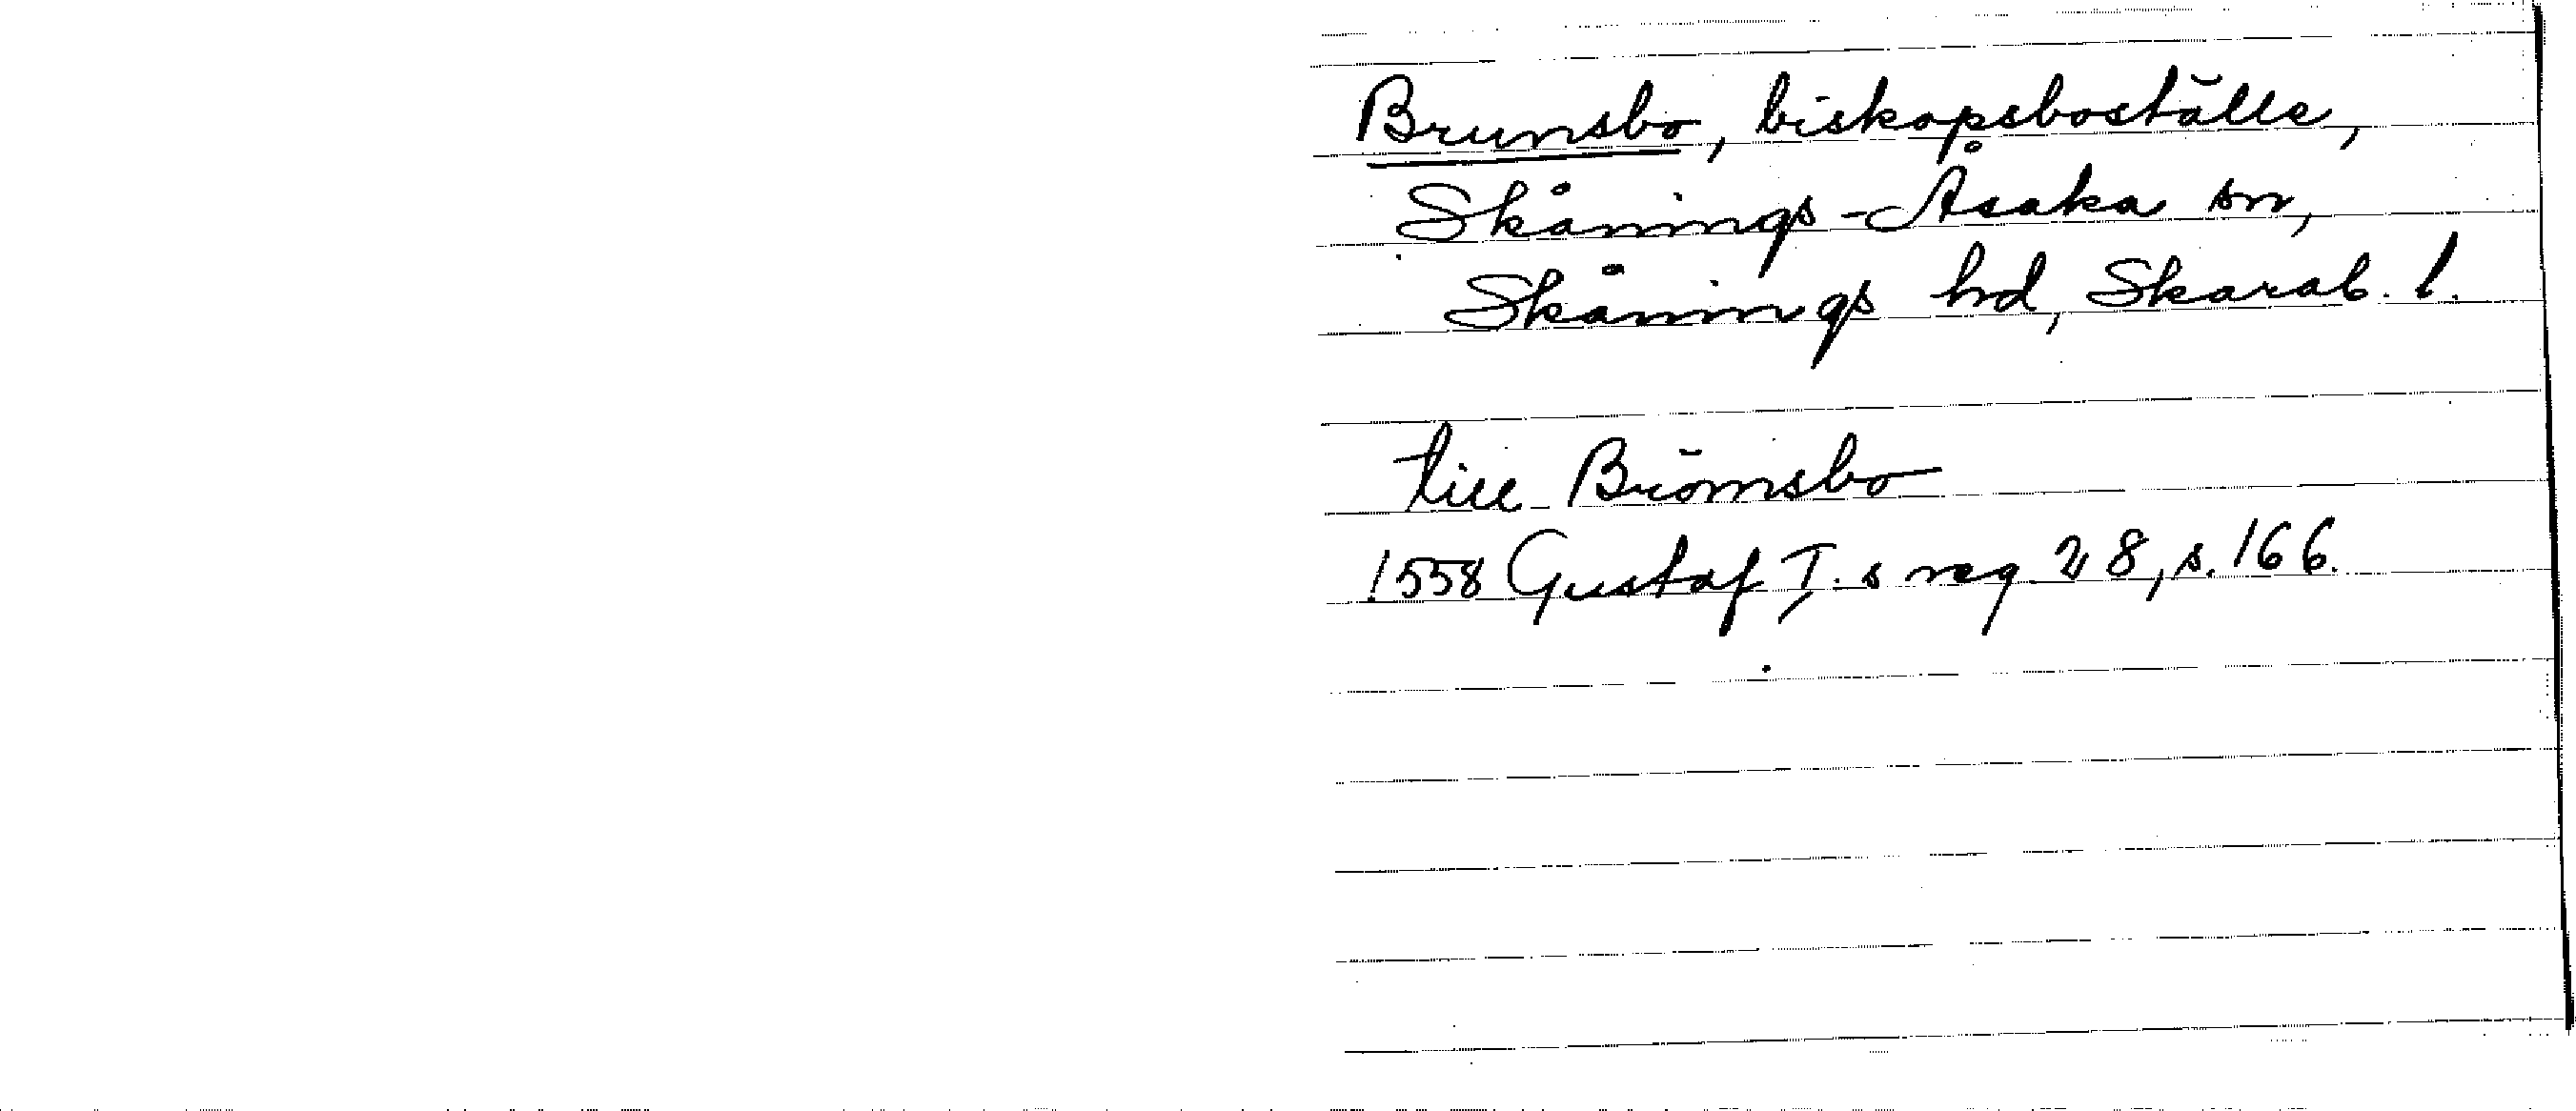 Brunsbo, biskopsboställe,
Skånings-Åsaka sn,
Skånings hd, Skarab. l.
till Brömsbo
1558 Gustaf I.s reg 28, s. 166.